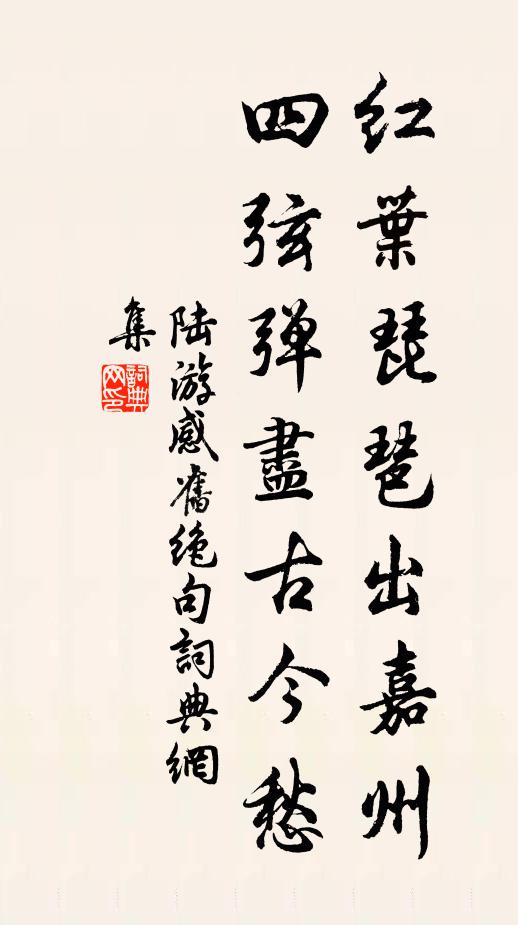 红葉琵琶出嘉州
四弦弹盡古今愁
陆游感舊绝句詞典網
集
詞典网印